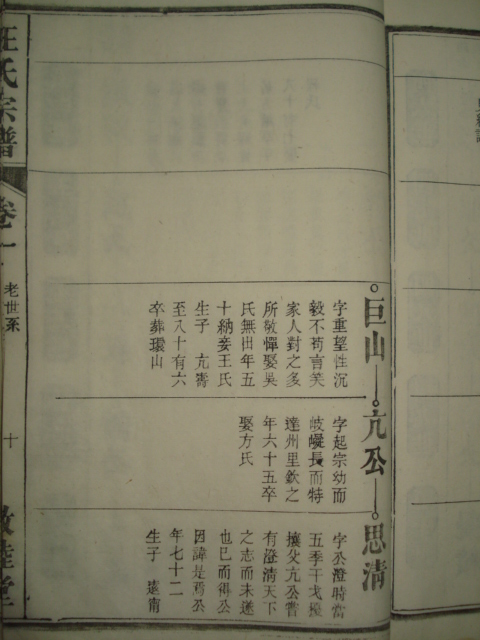 巨山
字重望性沉
毅不苟言笑
家人對之多
所敬憚娶吳
氏無出年五
十納妾王氏
生子 亢壽
至八十有六
卒葬環山
亢公
字起宗幼而
岐嶷長而特
達州里欽之
年六十五卒
娶方氏
思清
字公澄時當
五季干戈擾
攘父亢公嘗
有澄清天下
之志而未遂
也已而得公
因諱是焉公
年七十二
生子 遠甯
汪氏宗譜
卷一
老世系
十
敦睦堂